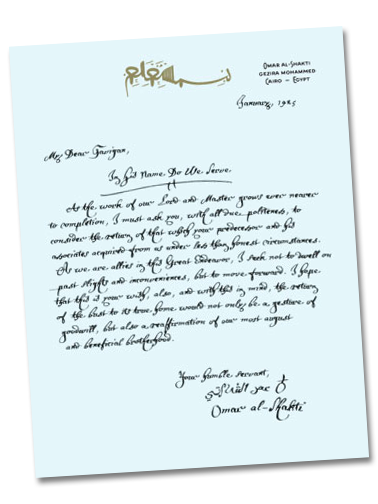 OMAR AL-SHAKTI
GEZIRA MOHAMMED
CAIRO – EGYPT
January, 1925
My Dear Farrigan,
In His Name Do We Serve
As the work of our Lord and Master grows ever nearer
to completion, I must ask you, with all due politeness, to
consider the return of that which your predecessor and his
associates acquired from us under less than honest circumstances.
As we are allies in this Great Endeavor, I seek not to dwell on
past slights and inconveniences, but to move forward. I hope
that this is your wish, also, and with this in mind, the return
of the bust to its true home would not only be a gesture of
goodwill, but also a reaffirmation of our most august
and beneficial brotherhood.
Your humble servant,
Omar al-Shakti